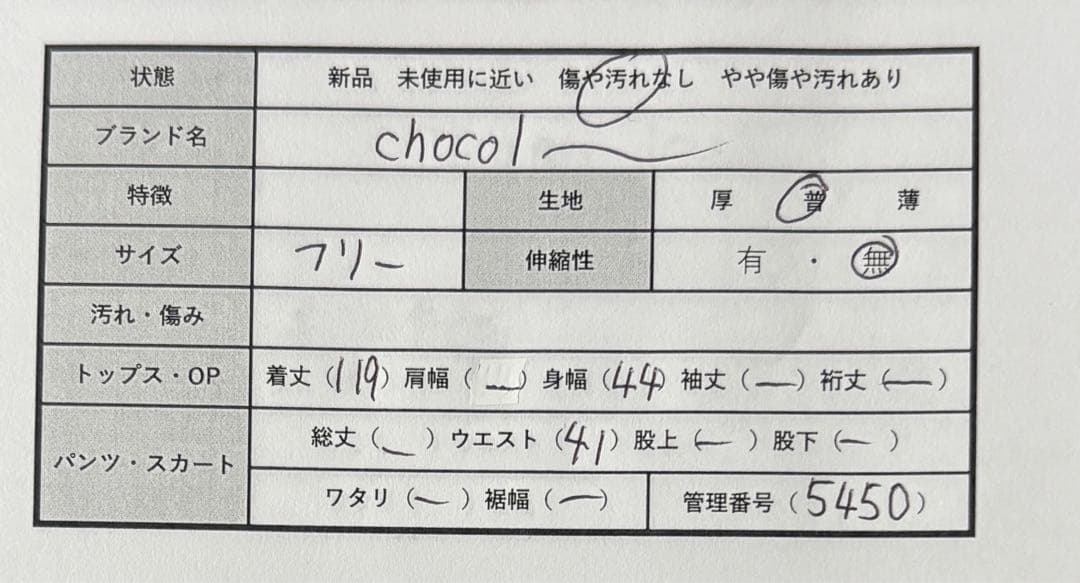 状態 新品 未使用に近い 傷や汚れなし やや傷や汚れあり
ブランド名 chocol
特徴 生地 厚 普 薄
サイズ フリー 伸縮性 有 ・ 無
汚れ・傷み
トップス・OP 着丈（119）肩幅（ー）身幅（44）袖丈（ー）裄丈（ー）
パンツ・スカート 総丈（ー）ウエスト（41）股上（ー）股下（ー）
ワタリ（ー）裾幅（ー） 管理番号（5450）